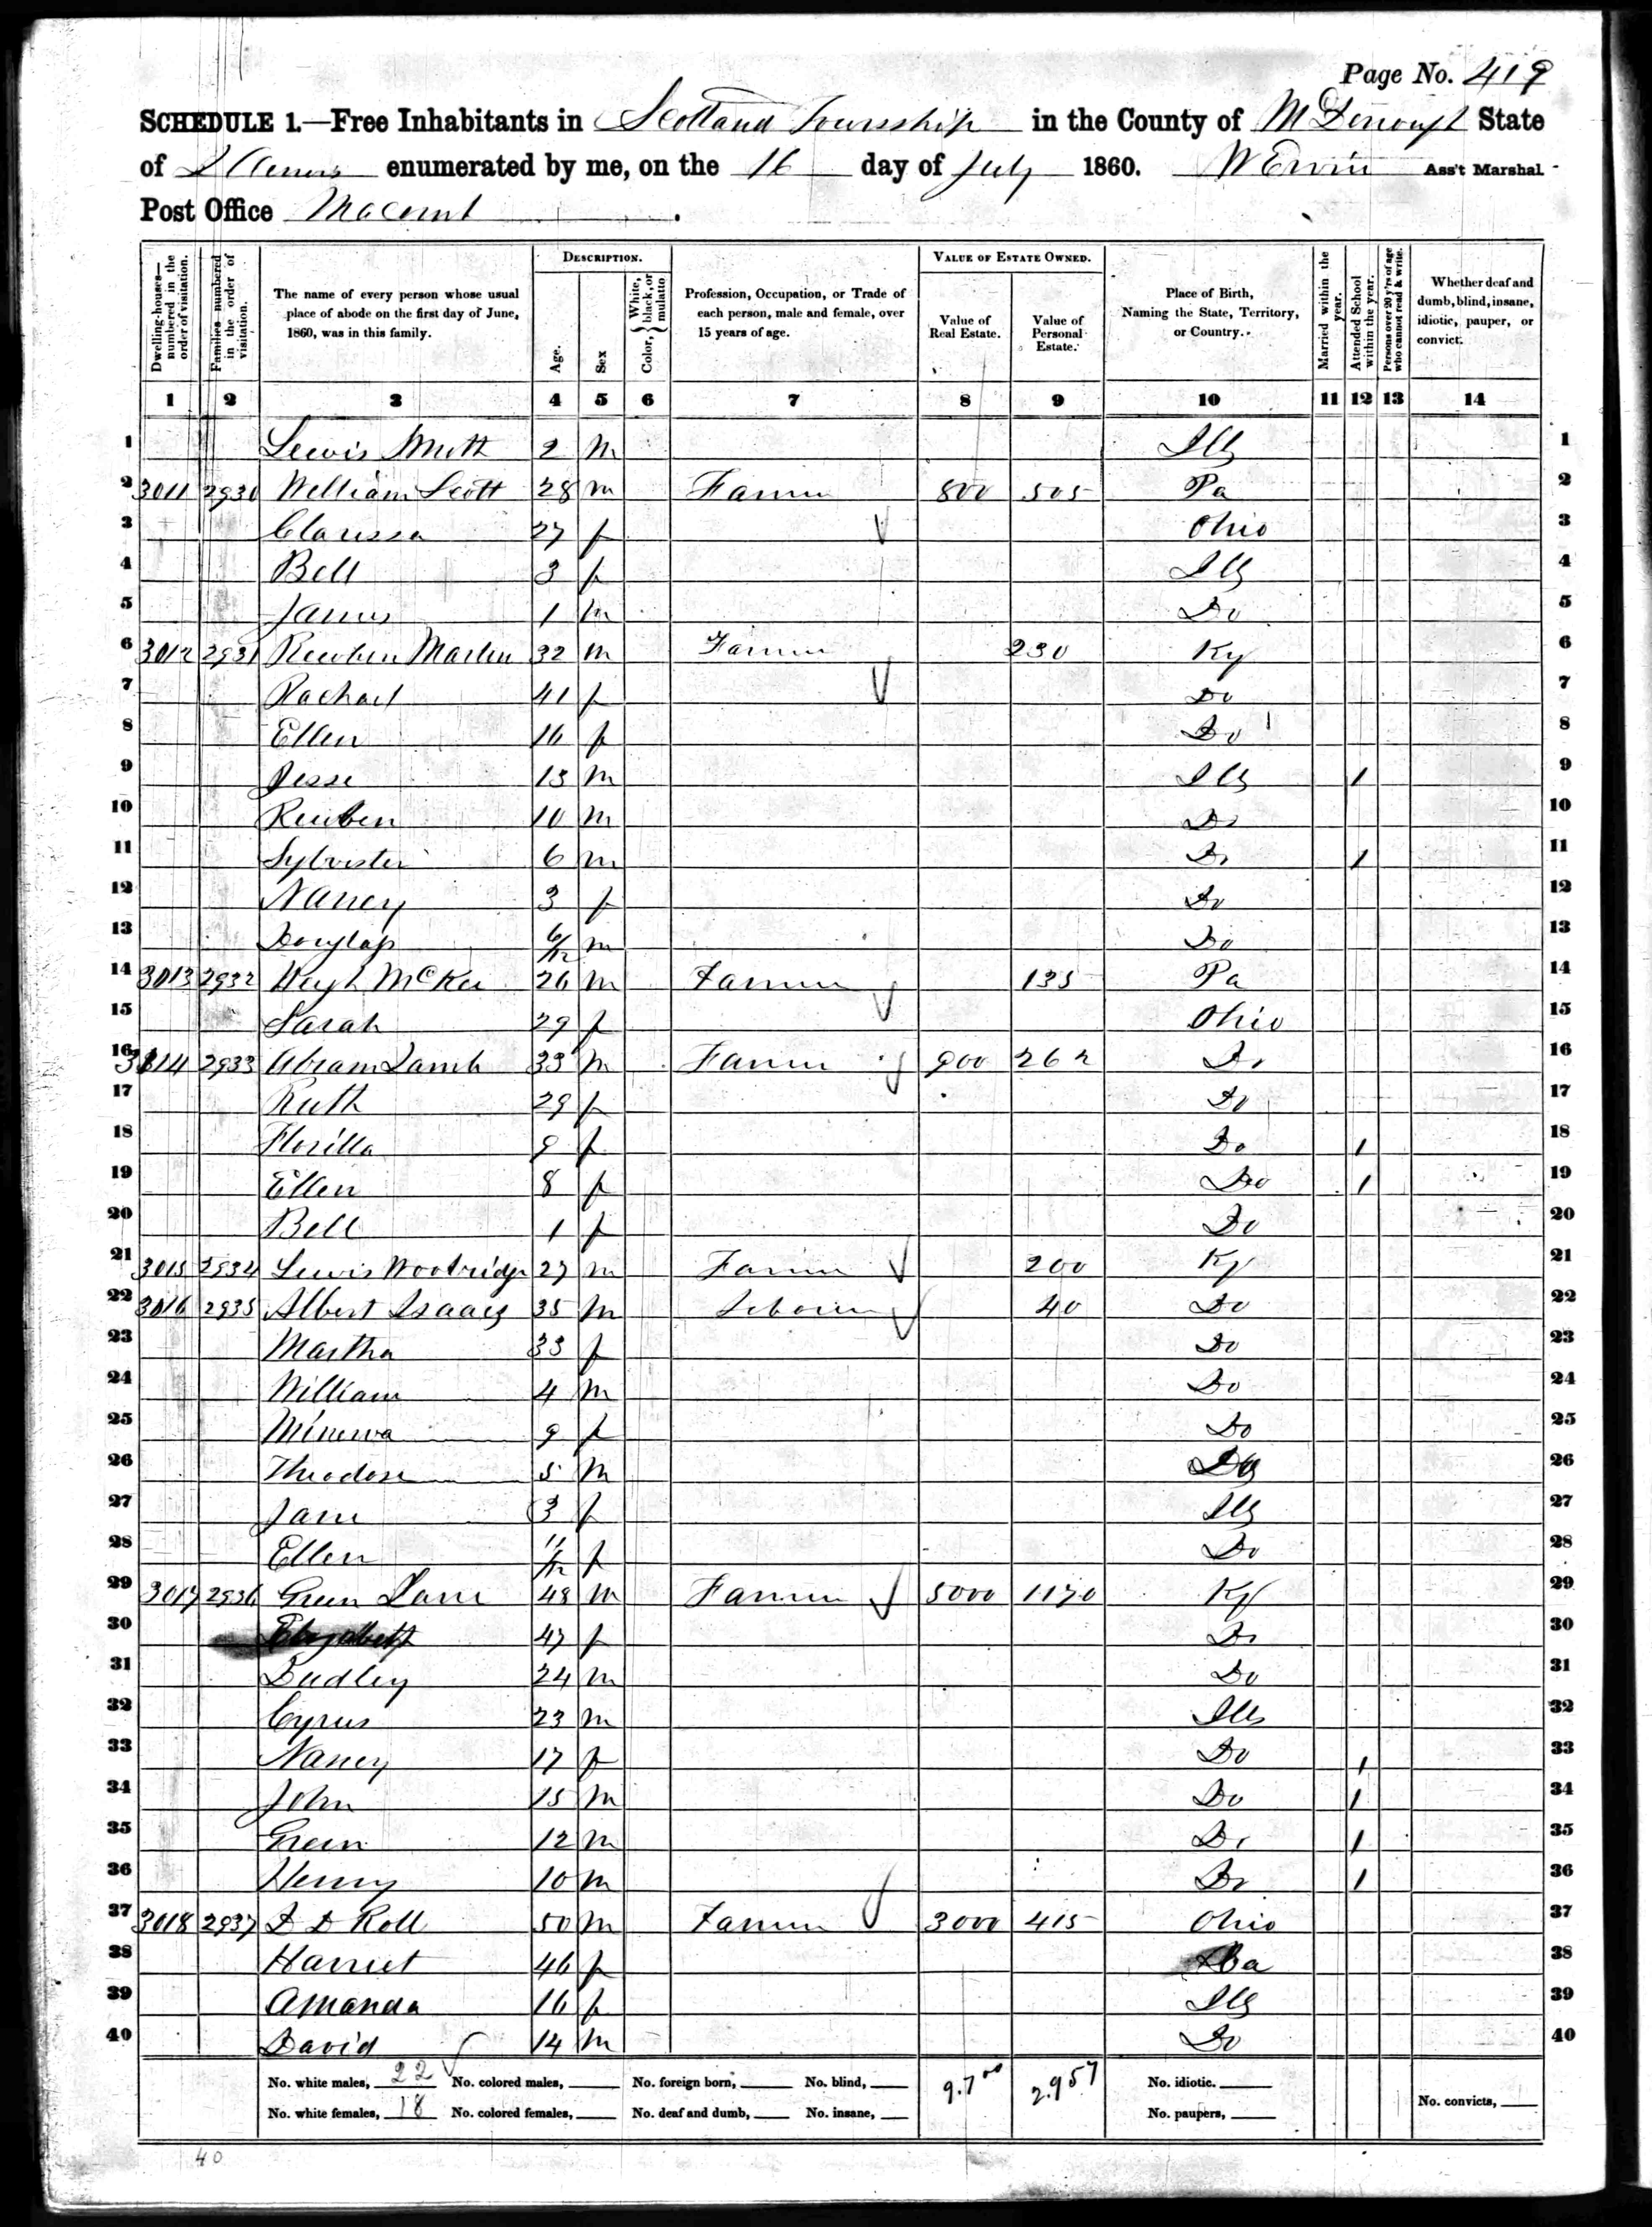 Page No. 419
SCHEDULE 1.—Free Inhabitants in Scotland Township in the County of McDonough State
of Illinois enumerated by me, on the 16 day of July 1860. W Ervin Ass't Marshal
Post Office Macomb.
DESCRIPTION. VALUE OF ESTATE OWNED.
Dwelling-houses—numbered in the order of visitation. Families numbered in the order of visitation. The name of every person whose usual place of abode on the first day of June, 1860, was in this family. Age. Sex Color, White, black, or mulatto Profession, Occupation, or Trade of each person, male and female, over 15 years of age. Value of Real Estate. Value of Personal Estate. Place of Birth, Naming the State, Territory, or Country. Married within the year. Attended School within the year. Persons over 20 y'rs of age who cannot read & write. Whether deaf and dumb, blind, insane, idiotic, pauper, or convict.
1 2 3 4 5 6 7 8 9 10 11 12 13 14
1 Lewis 2 m Ills 1
2 3011 2930 William Scott 28 m Farmer 800 505 Pa 2
3 Clarissa 27 f Ohio 3
4 Bell 3 f Ills 4
5 James 1 m Do 5
6 3012 2931 Reuben Martin 32 m Farmer 230 Ky 6
7 Rachael 41 f Do 7
8 Ellen 16 f Do 8
9 Jesse 13 m Ills 1 9
10 Reuben 10 m Do 10
11 Sylvester 6 m Do 1 11
12 Nancy 3 f Do 12
13 Douglass 6/12 m Do 13
14 3013 2932 Hugh McKee 26 m Farmer 135 Pa 14
15 Sarah 29 f Ohio 15
16 3014 2933 Abram Lamb 33 m Farmer 900 262 Do 16
17 Ruth 29 f Do 17
18 Florilla 9 f Do 1 18
19 Ellen 8 f Do 1 19
20 Bell 1 f Do 20
21 3015 2934 Lewis Wootridge 27 m Farmer 200 Ky 21
22 3016 2935 Albert Isaacs 35 m Laborer 40 Do 22
23 Martha 33 f Do 23
24 William 4 m Do 24
25 Minerva 9 f Do 25
26 Theodore 5 m 26
27 Jane 3 f Ills 27
28 Ellen 11/12 f Do 28
29 3017 2936 Green Lane 48 m Farmer 5000 1170 Ky 29
30 Elizabeth 47 f Do 30
31 Dudley 24 m Do 31
32 Cyrus 23 m Ills 32
33 Nancy 17 f Do 1 33
34 John 15 m Do 1 34
35 Green 12 m Do 1 35
36 Henry 10 m Do 1 36
37 3018 2937 D D Roll 50 m Farmer 3000 415 Ohio 37
38 Harriet 46 f 38
39 Amanda 16 f Ills 39
40 David 14 m Do 40
No. white males, 22 No. colored males, No. foreign born, No. blind, 9.700 2.957 No. idiotic.
No. white females, 18 No. colored females, No. deaf and dumb, No. insane, No. paupers, No. convicts,
40